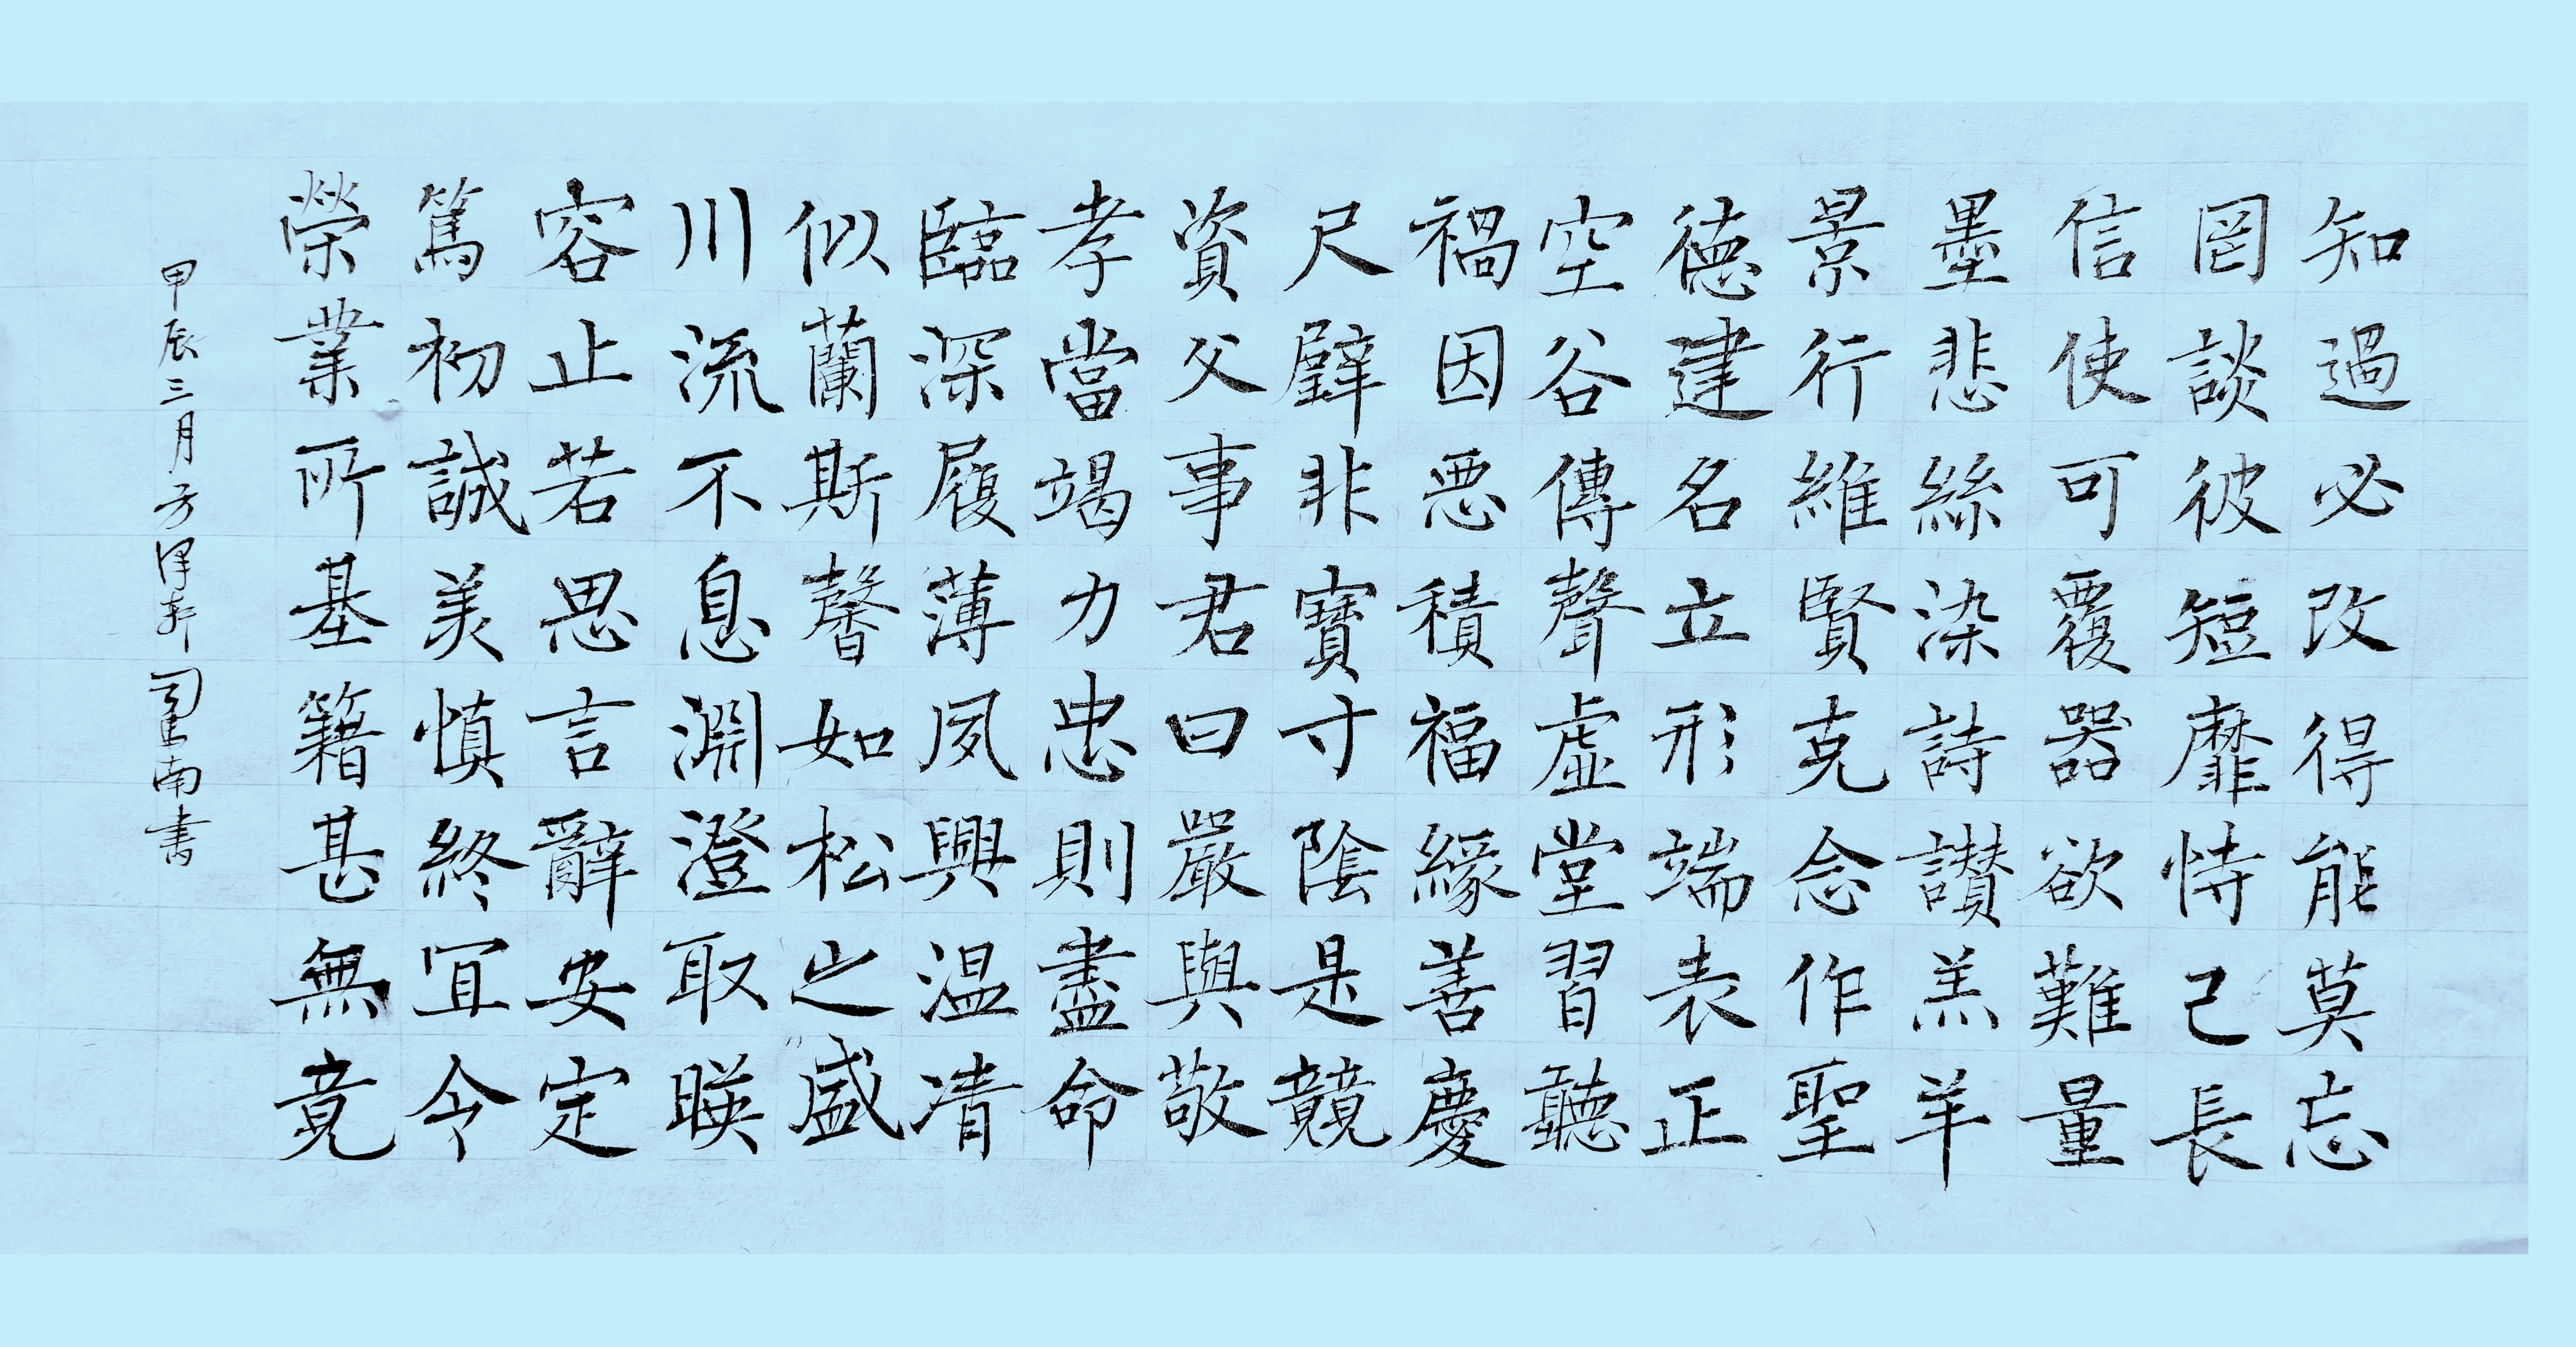 知過必改得能莫忘
罔談彼短靡恃己長
信使可覆器欲難量
墨悲絲染詩讃羔羊
景行維賢克念作聖
德建名立形端表正
空谷傳聲虛堂習聽
禍因惡積福緣善慶
尺璧非寶寸陰是競
資父事君曰嚴與敬
孝當竭力忠則盡命
臨深履薄夙興温凊
似蘭斯馨如松之盛
川流不息淵澄取暎
容止若思言辭安定
篤初誠美慎終宜令
榮業所基籍甚無竟
甲辰三月方 南書